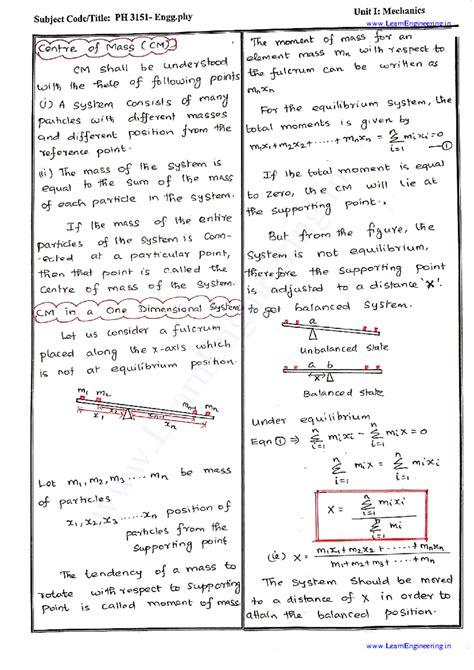 Subject Code/Title: PH 3151- Engg.phy
Unit I: Mechanics
www.LearnEngineering.in
Centre of Mass (CM)
CM shall be understood
with the help of following points
(i) A system consists of many
particles with different masses
and different position from the
reference point.
(ii) The mass of the system is
equal to the sum of the mass
of each particle in the system.
If the mass of the entire
particles of the system is conn-
-ected at a particular point,
then that point is called the
Centre of mass of the system.
CM in a One Dimensional System
Let us consider a fulcrum
placed along the x-axis which
is not at equilibrium position.
m₁ m₂ mₙ₋₁ mₙ
x₁ x₂ xₙ₋₁ xₙ
Let m₁, m₂, m₃ .... mₙ be mass
of particles
x₁, x₂, x₃ ..... xₙ position of
particles from the
supporting point
The tendency of a mass to
rotate with respect to supporting
point is called moment of mass
The moment of mass for an
element mass mₙ with respect to
the fulcrum can be written as
mₙxₙ
For the equilibrium system, the
total moments is given by
m₁x₁ + m₂x₂ + ...... + mₙxₙ = Σⁿᵢ₌₁ mᵢxᵢ = 0
①
If the total moment is equal
to zero, the CM will lie at
the supporting point.
But from the figure, the
system is not equilibrium,
therefore the supporting point
is adjusted to a distance 'x'
to get balanced system.
a
Unbalanced state
a b
x
Balanced State
Under equilibrium
Eqn ① ⇒ Σⁿᵢ₌₁ mᵢxᵢ - Σⁿᵢ₌₁ mᵢx = 0
Σⁿᵢ₌₁ mᵢx = Σⁿᵢ₌₁ mᵢxᵢ
x = Σⁿᵢ₌₁ mᵢxᵢ / Σⁿᵢ₌₁ mᵢ
(ie) x = m₁x₁ + m₂x₂ + ...... + mₙxₙ / m₁ + m₂ + m₃ + .... + mₙ
The system should be moved
to a distance of x in order to
attain the balanced position.
www.LearnEngineering.in